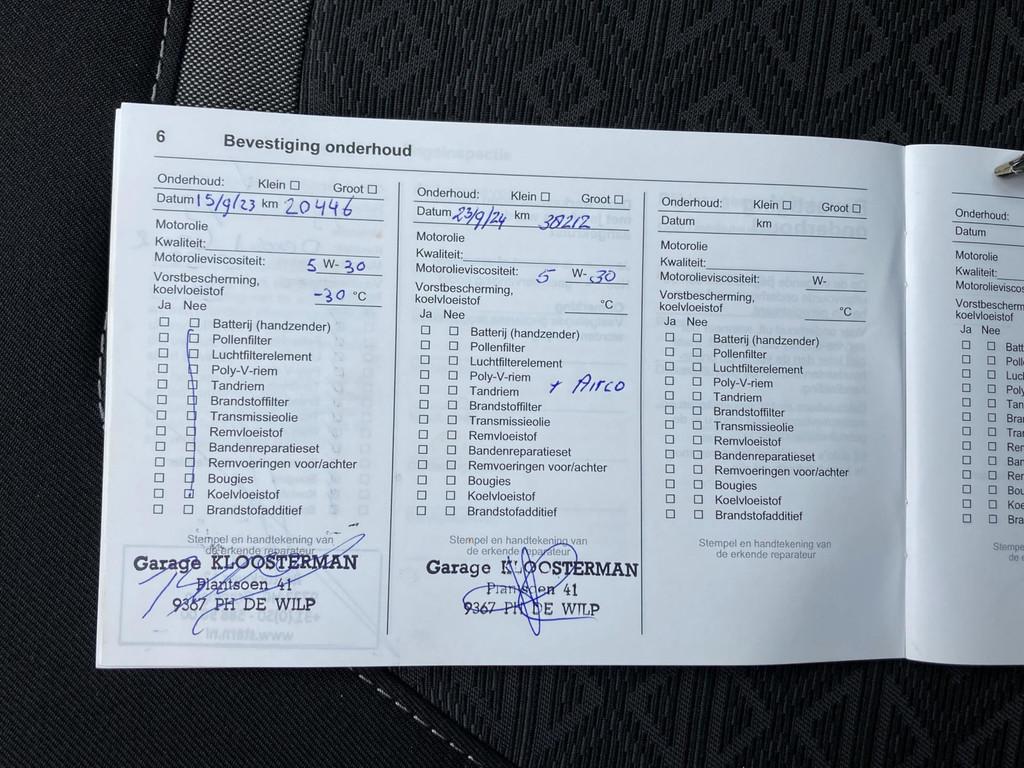 6 Bevestiging onderhoud
Onderhoud: Klein ☐ Groot ☐
Datum 15/9/23 km 20446
Motorolie
Kwaliteit:
Motorolieviscositeit: 5 W- 30
Vorstbescherming,
koelvloeistof -30 °C
Ja Nee
☐ ☐ Batterij (handzender)
☐ ☐ Pollenfilter
☐ ☐ Luchtfilterelement
☐ ☐ Poly-V-riem
☐ ☐ Tandriem
☐ ☐ Brandstoffilter
☐ ☐ Transmissieolie
☐ ☐ Remvloeistof
☐ ☐ Bandenreparatieset
☐ ☐ Remvoeringen voor/achter
☐ ☐ Bougies
☐ ☐ Koelvloeistof
☐ ☐ Brandstofadditief
Stempel en handtekening van
de erkende reparateur
Garage KLOOSTERMAN
Plantsoen 41
9367 PH DE WILP
Onderhoud: Klein ☐ Groot ☐
Datum 23/9/24 km 38212
Motorolie
Kwaliteit:
Motorolieviscositeit: 5 W- 30
Vorstbescherming,
koelvloeistof °C
Ja Nee
☐ ☐ Batterij (handzender)
☐ ☐ Pollenfilter
☐ ☐ Luchtfilterelement
☐ ☐ Poly-V-riem
☐ ☐ Tandriem + Airco
☐ ☐ Brandstoffilter
☐ ☐ Transmissieolie
☐ ☐ Remvloeistof
☐ ☐ Bandenreparatieset
☐ ☐ Remvoeringen voor/achter
☐ ☐ Bougies
☐ ☐ Koelvloeistof
☐ ☐ Brandstofadditief
Stempel en handtekening van
de erkende reparateur
Garage KLOOSTERMAN
Plantsoen 41
9367 PH DE WILP
Onderhoud: Klein ☐ Groot ☐
Datum km
Motorolie
Kwaliteit:
Motorolieviscositeit: W-
Vorstbescherming,
koelvloeistof °C
Ja Nee
☐ ☐ Batterij (handzender)
☐ ☐ Pollenfilter
☐ ☐ Luchtfilterelement
☐ ☐ Poly-V-riem
☐ ☐ Tandriem
☐ ☐ Brandstoffilter
☐ ☐ Transmissieolie
☐ ☐ Remvloeistof
☐ ☐ Bandenreparatieset
☐ ☐ Remvoeringen voor/achter
☐ ☐ Bougies
☐ ☐ Koelvloeistof
☐ ☐ Brandstofadditief
Stempel en handtekening van
de erkende reparateur
Onderhoud:
Datum
Motorolie
Kwaliteit:
Motorolievisco
Vorstbescherm
koelvloeistof
Ja Nee
☐ ☐ Batt
☐ ☐ Poll
☐ ☐ Luc
☐ ☐ Pol
☐ ☐ Tan
☐ ☐ Bra
☐ ☐ Tra
☐ ☐ Rer
☐ ☐ Bar
☐ ☐ Rer
☐ ☐ Bou
☐ ☐ Koe
☐ ☐ Bra
Stempe
de